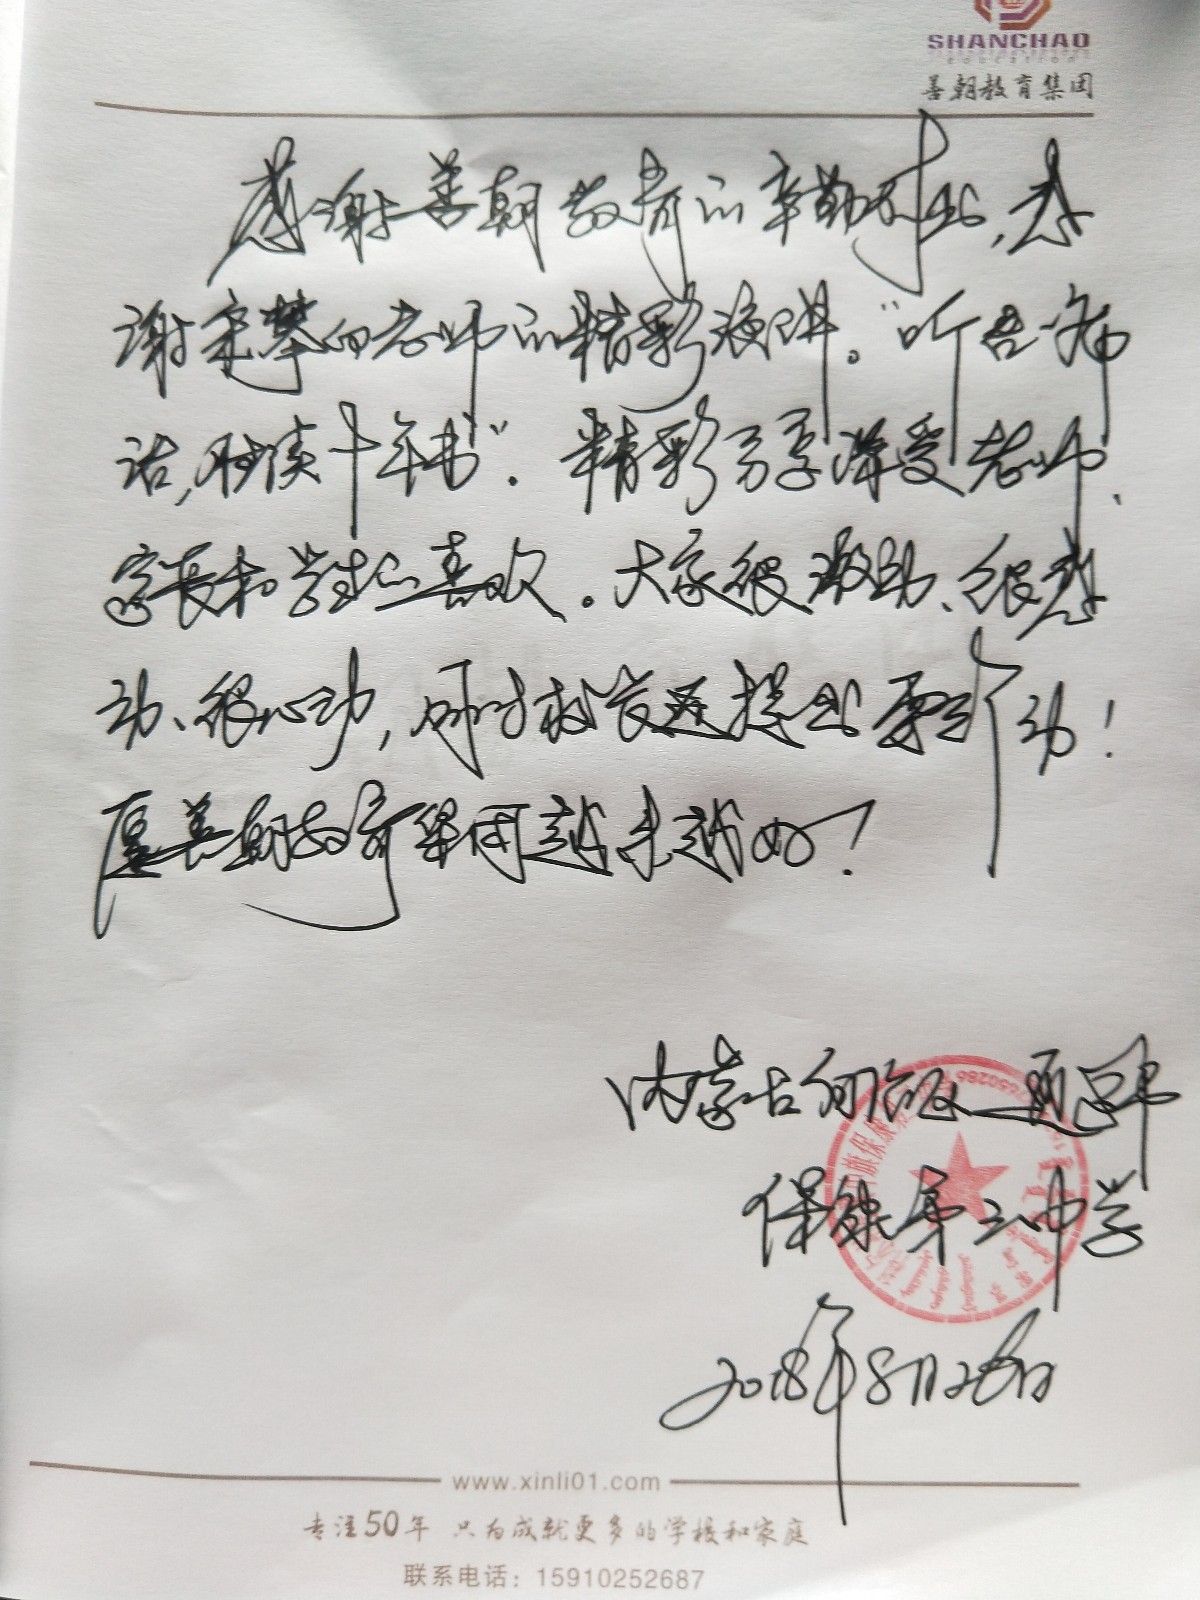 SHANCHAO
education
善朝教育集团
感谢善朝教育的辛勤付出,感
谢宋攀回老师的精彩演讲。"听君一席
话,胜读十年书"。精彩分享深受老师、
家长和学生的喜欢。大家很激动、很感
动、很心动,同时校长还提出要行动!
愿善朝教育集团越来越好!
内蒙古奈曼旗
保康第三中学
2018年8月28日
www.xinli01.com
专注50年 只为成就更多的学校和家庭
联系电话:15910252687